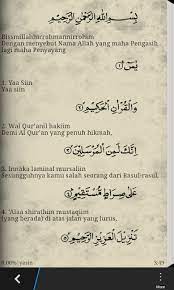 بِسْمِ اللَّهِ الرَّحْمَٰنِ الرَّحِيمِ
Bissmillahirrahmannirrohim
Dengan menyebut Nama Allah yang maha Pengasih
lagi maha Penyayang
يس ۝١
1. Yaa Siin
Yaa siin
وَالْقُرْآنِ الْحَكِيمِ ۝٢
2. Wal Qur'anil hakiim
Demi Al Qur'an yang penuh hikmah,
إِنَّكَ لَمِنَ الْمُرْسَلِينَ ۝٣
3. Innaka laminal mursaliin
Sesungguhnya kamu salah seorang dari Rasul-rasul,
عَلَىٰ صِرَاطٍ مُسْتَقِيمٍ ۝٤
4. 'Alaa shirathim mustaqiim
(yang berada) di atas jalan yang lurus,
تَنْزِيلَ الْعَزِيزِ الرَّحِيمِ ۝٥
0.00% | yasin 3:49
More